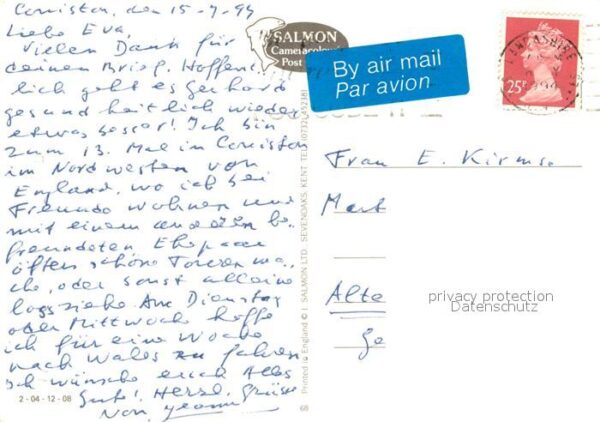 Coniston, den 15-7-94
Liebe Eva,
Vielen Dank für
deinen Brief. Hoffent-
lich geht es Gerhard
gesundheitlich wieder
etwas besser! Ich bin
zum 13. Mal in Coniston
im Nordwesten von
England, wo ich bei
Freunde wohnen und
mit einem anderen be-
freundeten Ehepaar
öfters schöne Touren ma-
che, oder sonst alleine
losziehe. Am Dienstag
oder Mittwoch hoffe
ich für eine Woche
nach Wales zu fahren
Ich wünsche euch Alles
Gute! Herzl. Grüsse
Von
2-04-12-08
SALMON
Cameracolour
Post
Printed in England © J. SALMON LTD. SEVENOAKS, KENT TEL (0732) 452381
By air mail
Par avion
LANCASHIRE
25P
Frau E. Kirmse
Alte
privacy protection
Datenschutz